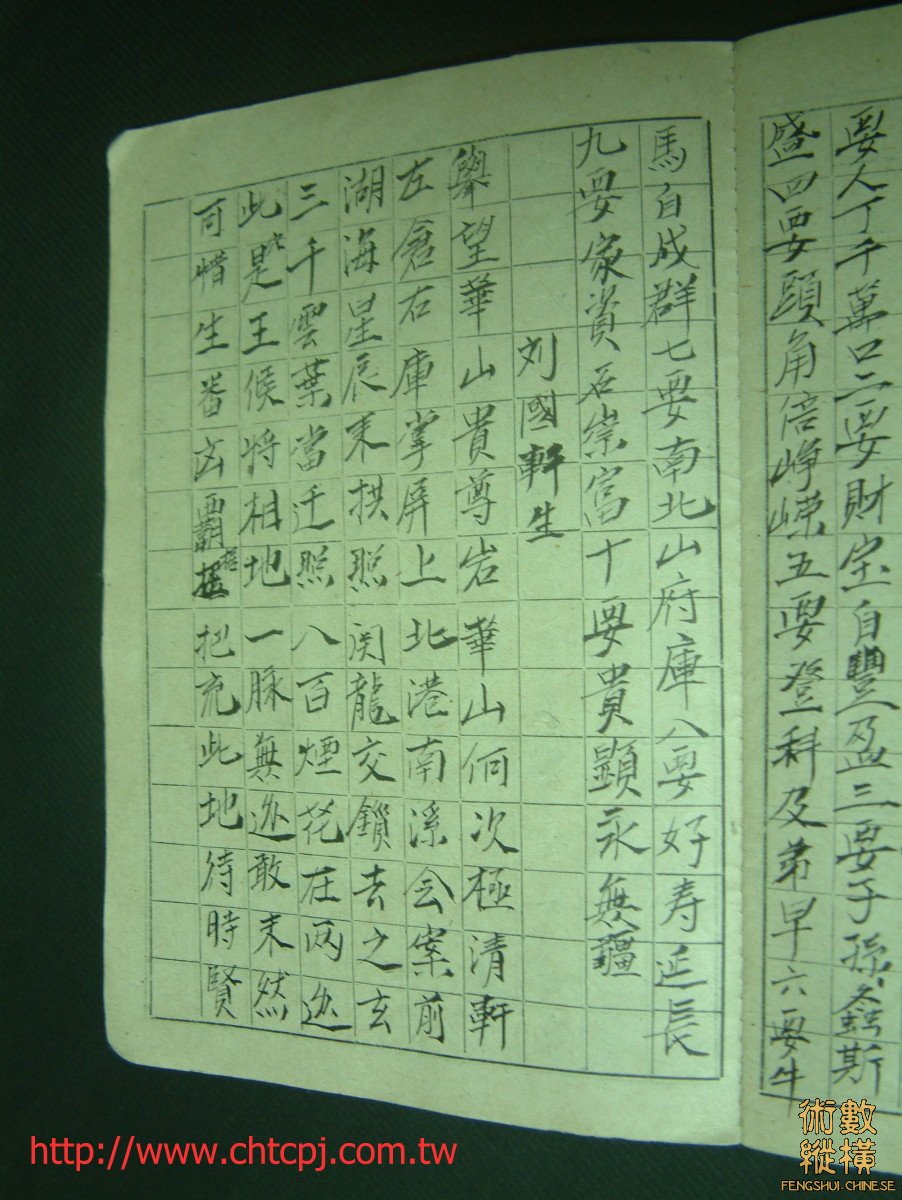 要人丁千萬口二要財宝自豐盈三要子孫螽斯
盛四要頭角倍崢嶸五要登科及第早六要牛
馬自成群七要南北山府庫八要好寿延長
九要家資石崇富十要貴顯永無疆
刘國軒生
舉望華山貴尊岩華山何次極清軒
左倉右庫掌屏上北港南溪会案前
湖海星辰来拱照関龍交鎖去之玄
三千雲葉當迁照八百煙花在両边
此是王候将相地一脉無边敢末然
可惜生番凶覇把充此地待時賢
http://www.chtcpj.com.tw
術數
縱橫
FENGSHUI-CHINESE